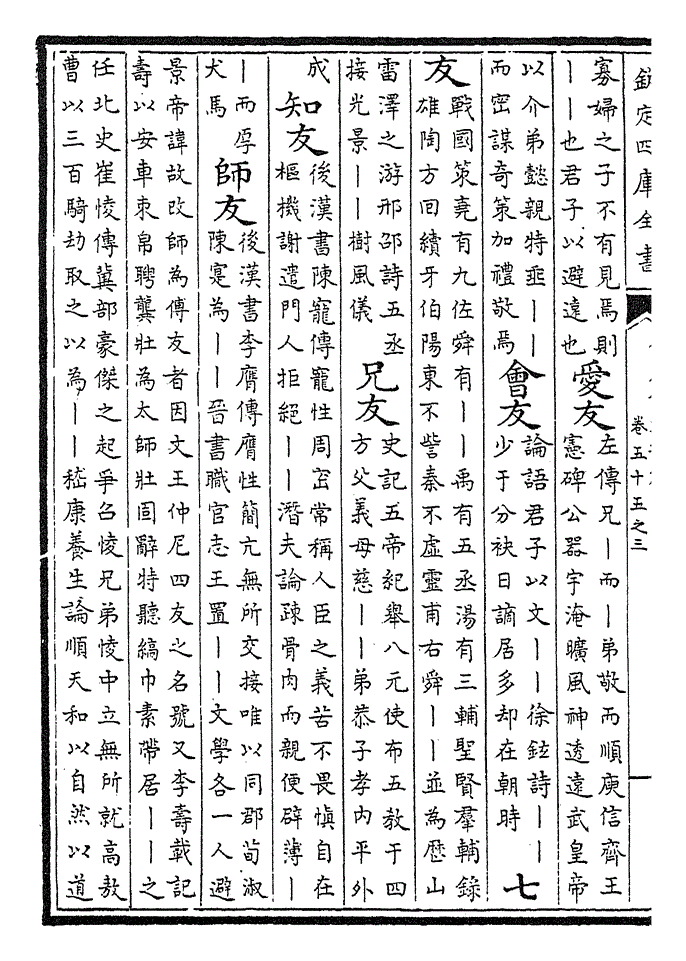 欽定四庫全書
卷五十五之三
寡婦之子不有見焉則
丨丨也君子以避遠也
愛友
左傳兄丨而丨弟敬而順庾信齊王
憲碑公器宇淹曠風神透遠武皇帝
以介弟懿親特亟丨丨
而密謀奇策加禮敬焉
會友
論語君子以文丨丨徐鉉詩丨丨
少于分袂日謫居多却在朝時
七
友
戰國策堯有九佐舜有丨丨禹有五丞湯有三輔聖賢羣輔錄
雄陶方回續牙伯陽東不訾秦不虛靈甫右舜丨丨並為歴山
雷澤之游邢邵詩五丞
接光景丨丨樹風儀
兄友
史記五帝紀舉八元使布五教于四
方父義母慈丨丨弟恭子孝内平外
成
知友
後漢書陳寵傳寵性周宻常稱人臣之義苦不畏慎自在
樞機謝遣門人拒絕丨丨潛夫論疎骨肉而親便辟薄丨
丨而厚
犬馬
師友
後漢書李膺傳膺性簡亢無所交接唯以同郡荀淑
陳寔為丨丨晉書職官志王置丨丨文學各一人避
景帝諱故改師為傅友者因文王仲尼四友之名號又李壽載記
壽以安車束帛聘龔壯為太師壯固辭特聽縞巾素帶居丨丨之
任北史崔㥄傳冀部豪傑之起爭召㥄兄弟㥄中立無所就高敖
曹以三百騎劫取之以為丨丨嵇康養生論順天和以自然以道